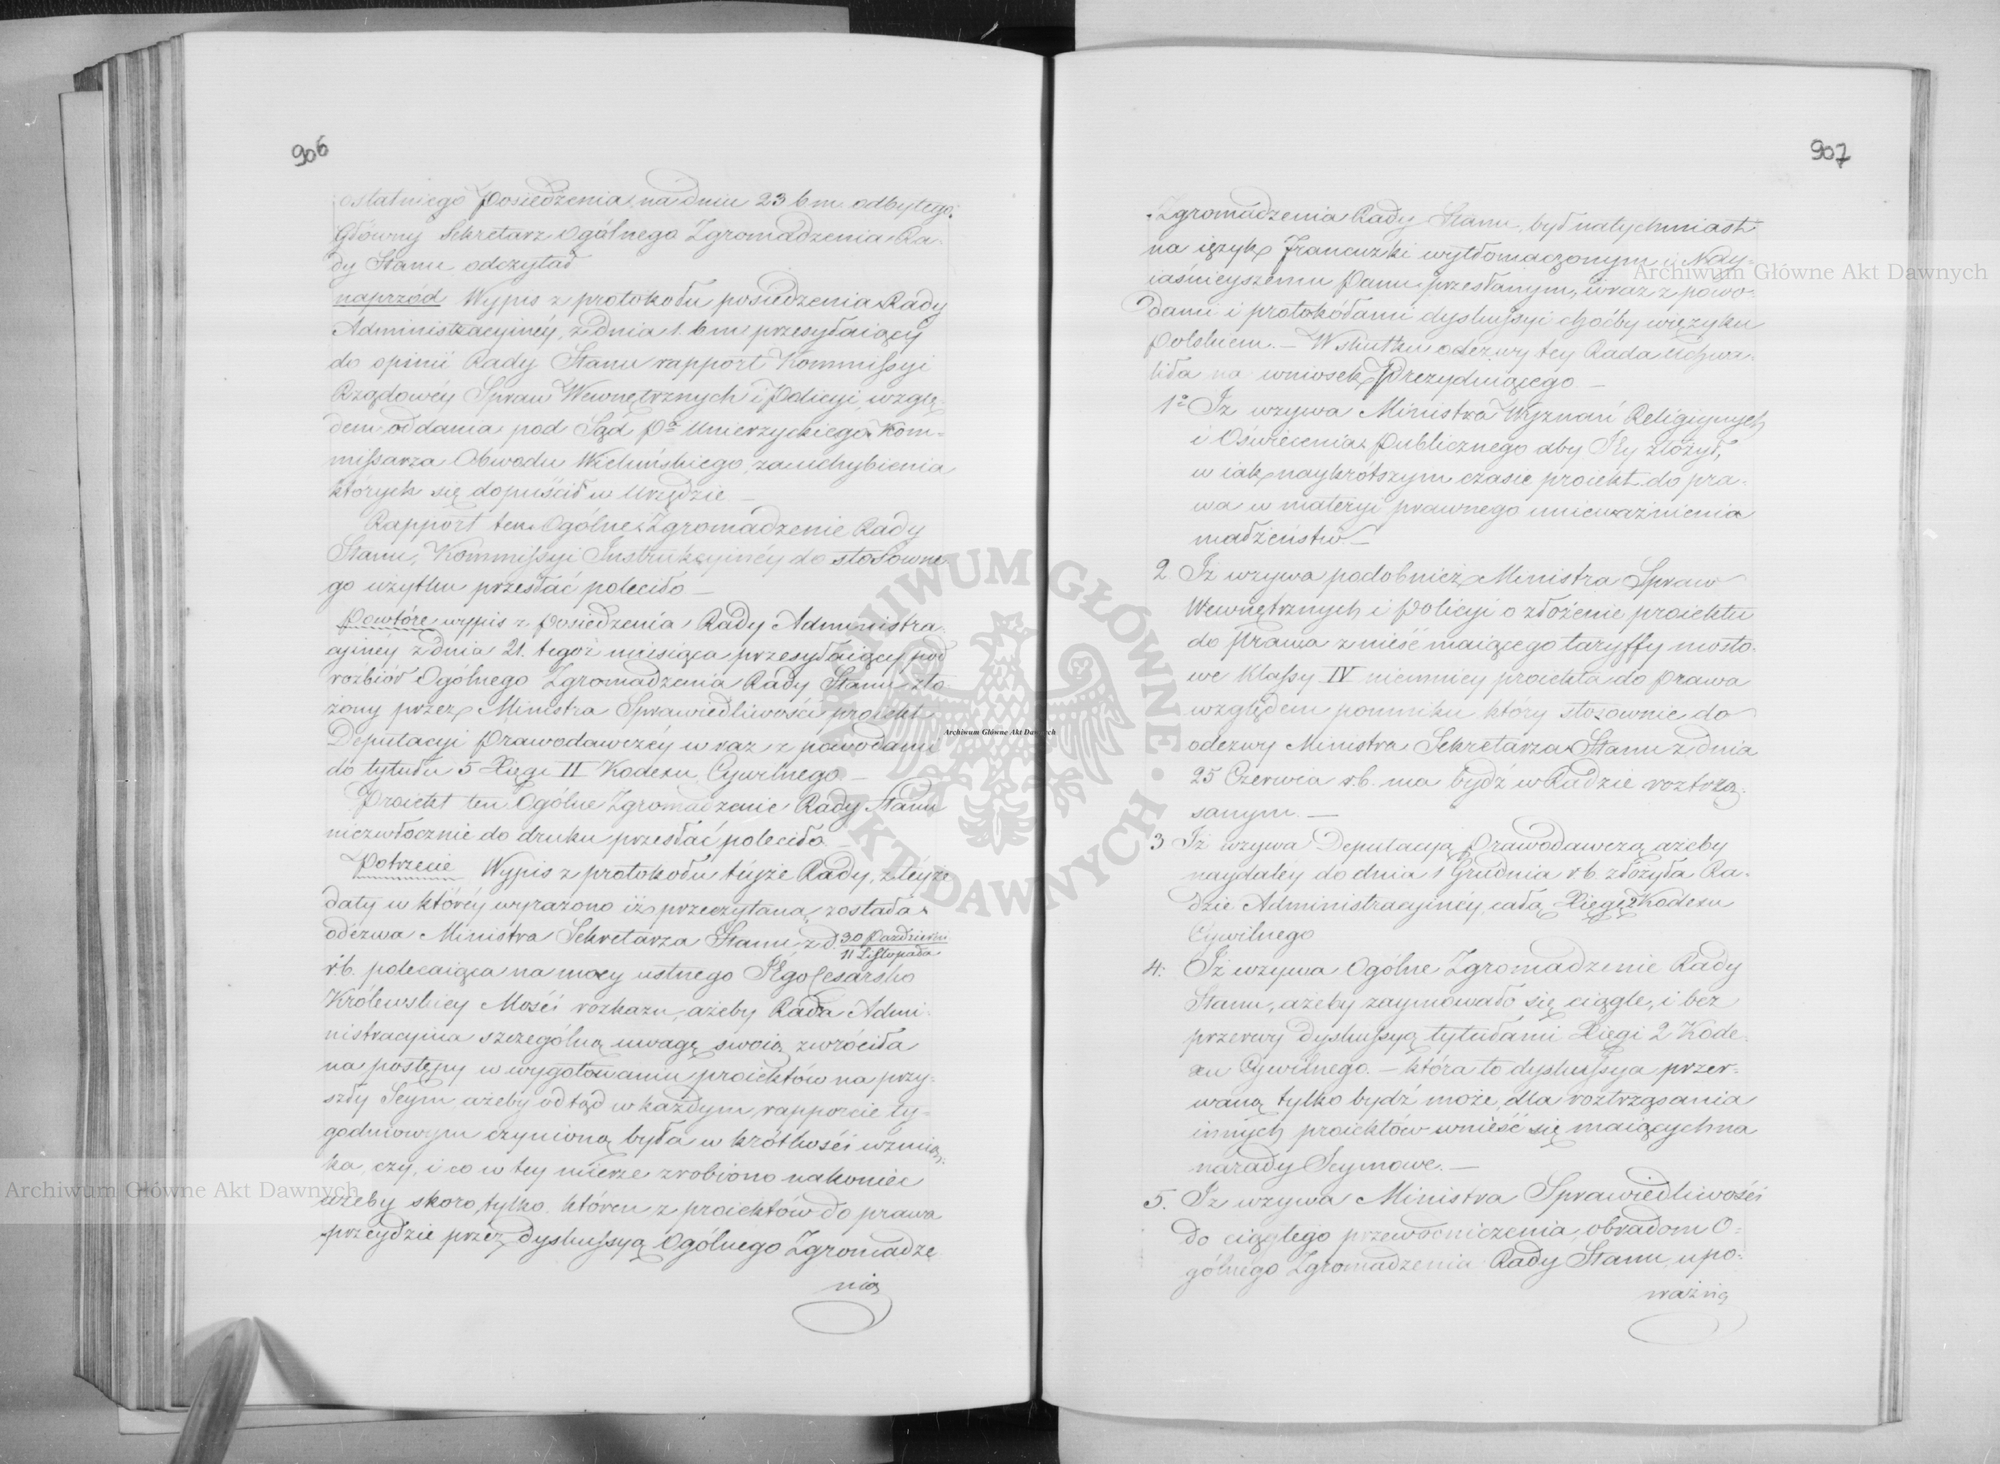 906
ostatniego posiedzenia na dniu 23 b m. odbytego.
Główny Sekretarz Ogólnego Zgromadzenia Ra-
dy Stanu odczytał
naprzód Wypis z protokołu posiedzenia Rady
Administracyinéy, z dnia 1. b m. przesyłaiący
do opinii Rady Stanu rapport Kommissyi
Rządowéy Spraw Wewnętrznych i Policyi, wzglę-
dem oddania pod Sąd Pa Unierzyckiego Kom-
missarza Obwodu Wieluńskiego za uchybienia
których się dopuścił w Urzędzie. —
Rapport ten Ogólne Zgromadzenie Rady
Stanu, Kommissyi Instrukcyinéy do stosowne-
go użytku przesłać poleciło —
Powtóre wypis z posiedzenia Rady Administra-
cyinéy z dnia 21. tegoż miesiąca przesyłaiący pod
rozbiór Ogólnego Zgromadzenia Rady Stanu zło-
żony przez Ministra Sprawiedliwości proiekt
Deputacyi Prawodawczéy wraz z powodami
do tytułu 5 Xięgi II Kodexu Cywilnego —
Proiekt ten Ogólne Zgromadzenie Rady Stanu
niezwłocznie do druku przesłać poleciło —
Potrzecie Wypis z protokołu téyże Rady, z téyże
daty w któréy wyrażono iż przeczytaną została
odezwa Ministra Sekretarza Stanu z d. 30 Października
11 Listopada
r.b. polecaiąca na mocy ustnego JEgo Cesarsko
Królewskiey Mości rozkazu, ażeby Rada Admi-
nistracyina szczególną uwagę swoią zwróciła
na postępy w wygotowaniu proiektów na przy-
szły Seym, ażeby odtąd w każdym rapporcie ty-
godniowym czynioną była w krótkości wzmian-
ka, czy, i co w tey mierze zrobiono nakoniec
ażeby skoro tylko któren z proiektów do prawa
przeydzie przez dyskussyą Ogólnego Zgromadze-
nia
907
Zgromadzenia Rady Stanu, był natychmiast
na ięzyk Francuzki wytłomaczonym i Nay-
iaśnieyszemu Panu przesłanym, wraz z powo-
dami i protokółami dyskussyi choćby w ięzyku
Polskiem. — W skutku odezwy tey Rada uchwa-
liła na wniosek Prezyduiącego —
1° Iż wzywa Ministra Wyznań Religiynych
i Oświecenia Publicznego aby Jey złożył,
w iak naykrótszym czasie proiekt do pra-
wa w materyi prawnego unieważnienia
małżeństw. —
2 Iż wzywa podobnież Ministra Spraw
Wewnętrznych i Policyi o złożenie proiektu
do Prawa znieść maiącego taryffy mosto-
we Klassy IV niemniey proiekta do Prawa
względem pomniku który stosownie do
odezwy Ministra Sekretarza Stanu z dnia
25 Czerwia r.b. ma bydź w Radzie roztrzą-
sanym. —
3 Iż wzywa Deputacyą Prawodawczą ażeby
naydaléy do dnia 1 Grudnia r b. złożyła Ra-
dzie Administracyinéy całą Xięgę 2 Kodexu
Cywilnego
4: Iż wzywa Ogólne Zgromadzenie Rady
Stanu, ażeby zaymowało się ciągle, i bez
przerwy dyskussyą tytułami Xięgi 2 Kode-
xu Cywilnego. — która to dyskussya przer-
waną tylko bydź może, dla roztrząsania
innych proiektów wnieść się maiących na
narady Seymowe. —
5. Iż wzywa Ministra Sprawiedliwości
do ciągłego przewodniczenia obradom O-
gólnego Zgromadzenia Rady Stanu, upo-
ważnią
Archiwum Główne Akt Dawnych
Archiwum Główne Akt Dawnych
Archiwum Główne Akt Dawnych
ARCHIWUM GŁÓWNE AKT DAWNYCH